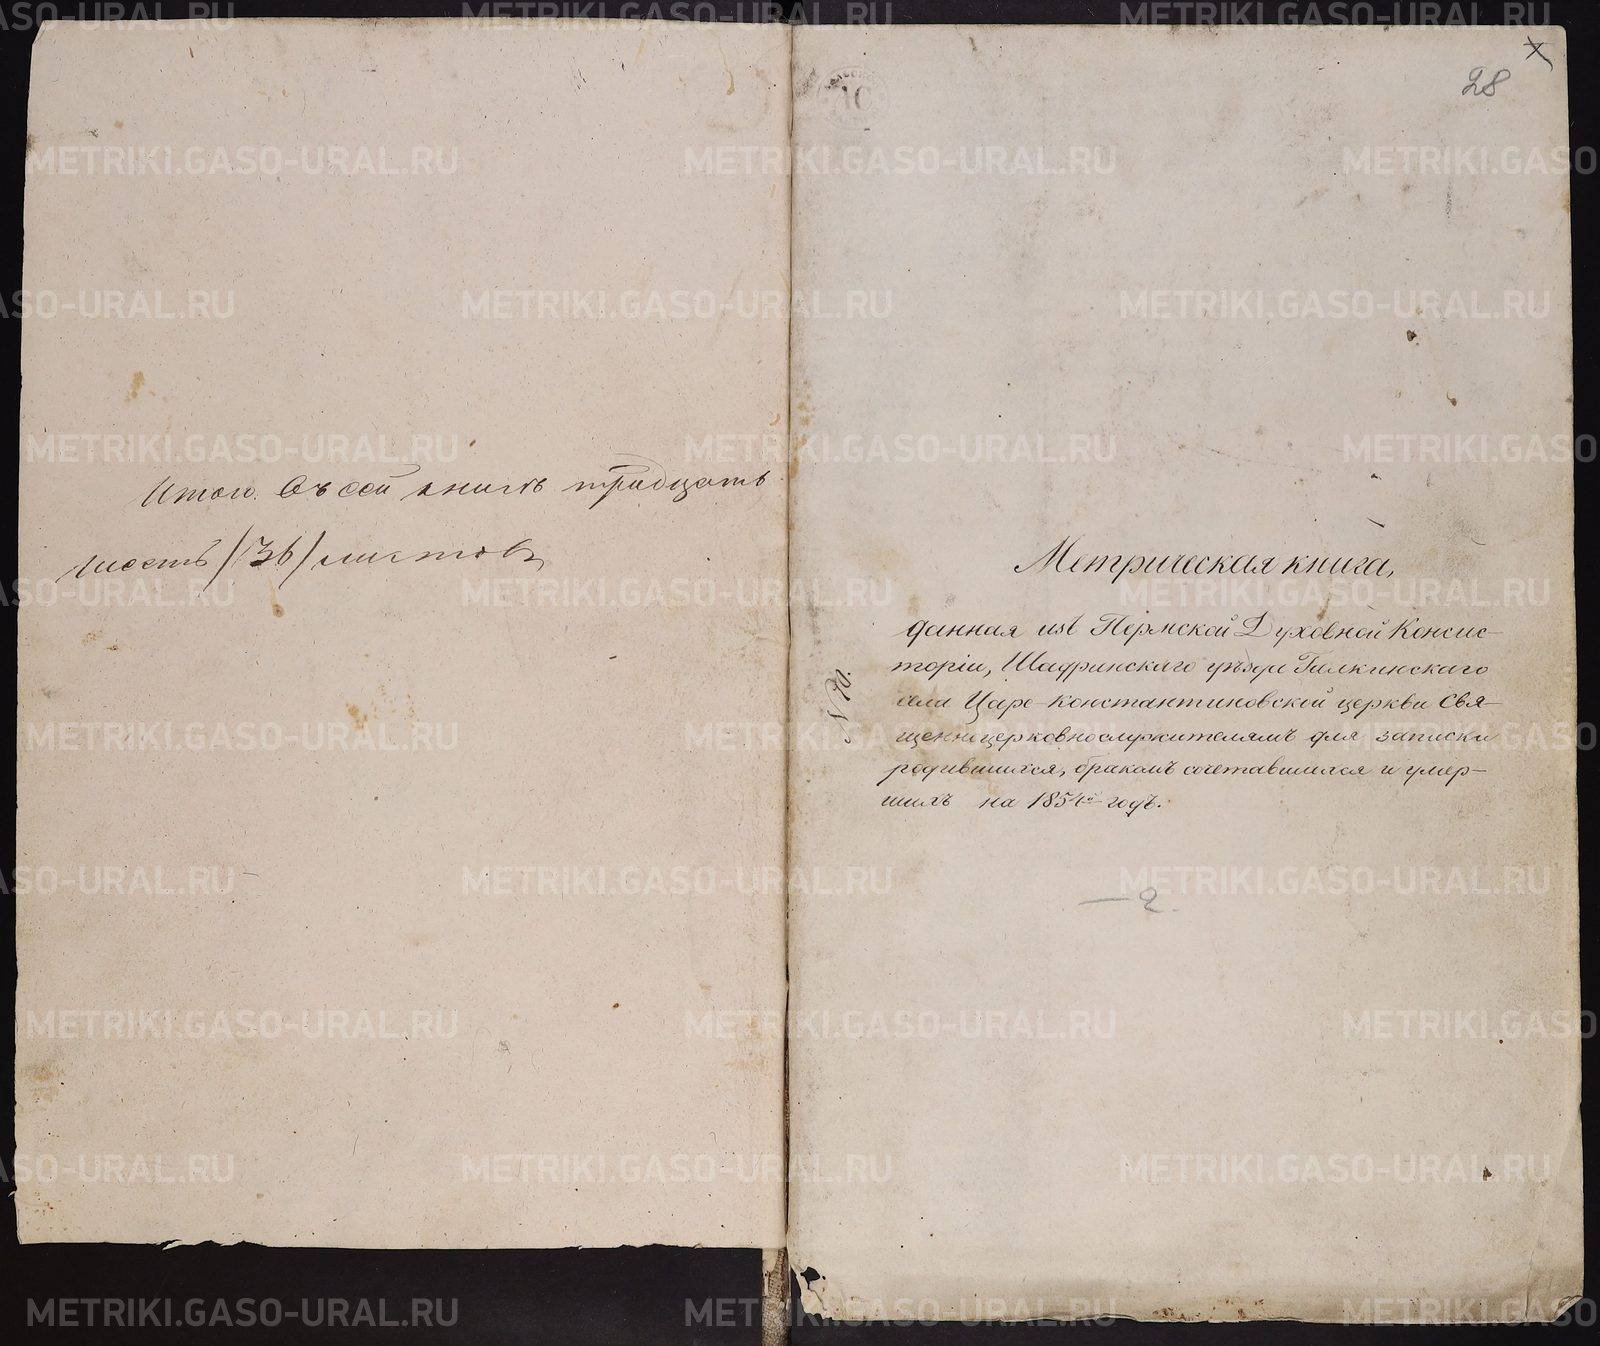 Итого въ сей книгѣ тридцать
шесть /36/ листовъ
28
Метрическая книга,
данная изъ Пермской Духовной Консис-
торіи, Шадринскаго уѣзда Галкинскаго
села Царе-Константиновской церкви Свя-
щенноцерковнослужителямъ для записки
родившихся, бракомъ сочетавшихся и умер-
шихъ на 1854й годъ.
— 2.
METRIKI.GASO-URAL.RU